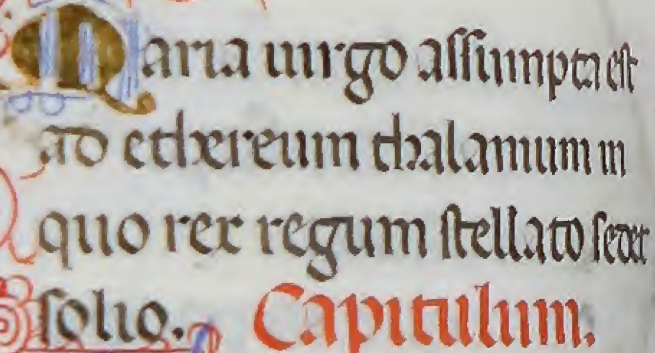 Maria uirgo assumpta est
ad ethereum thalamum in
quo rex regum stellato sedet
solio. Capitulum.